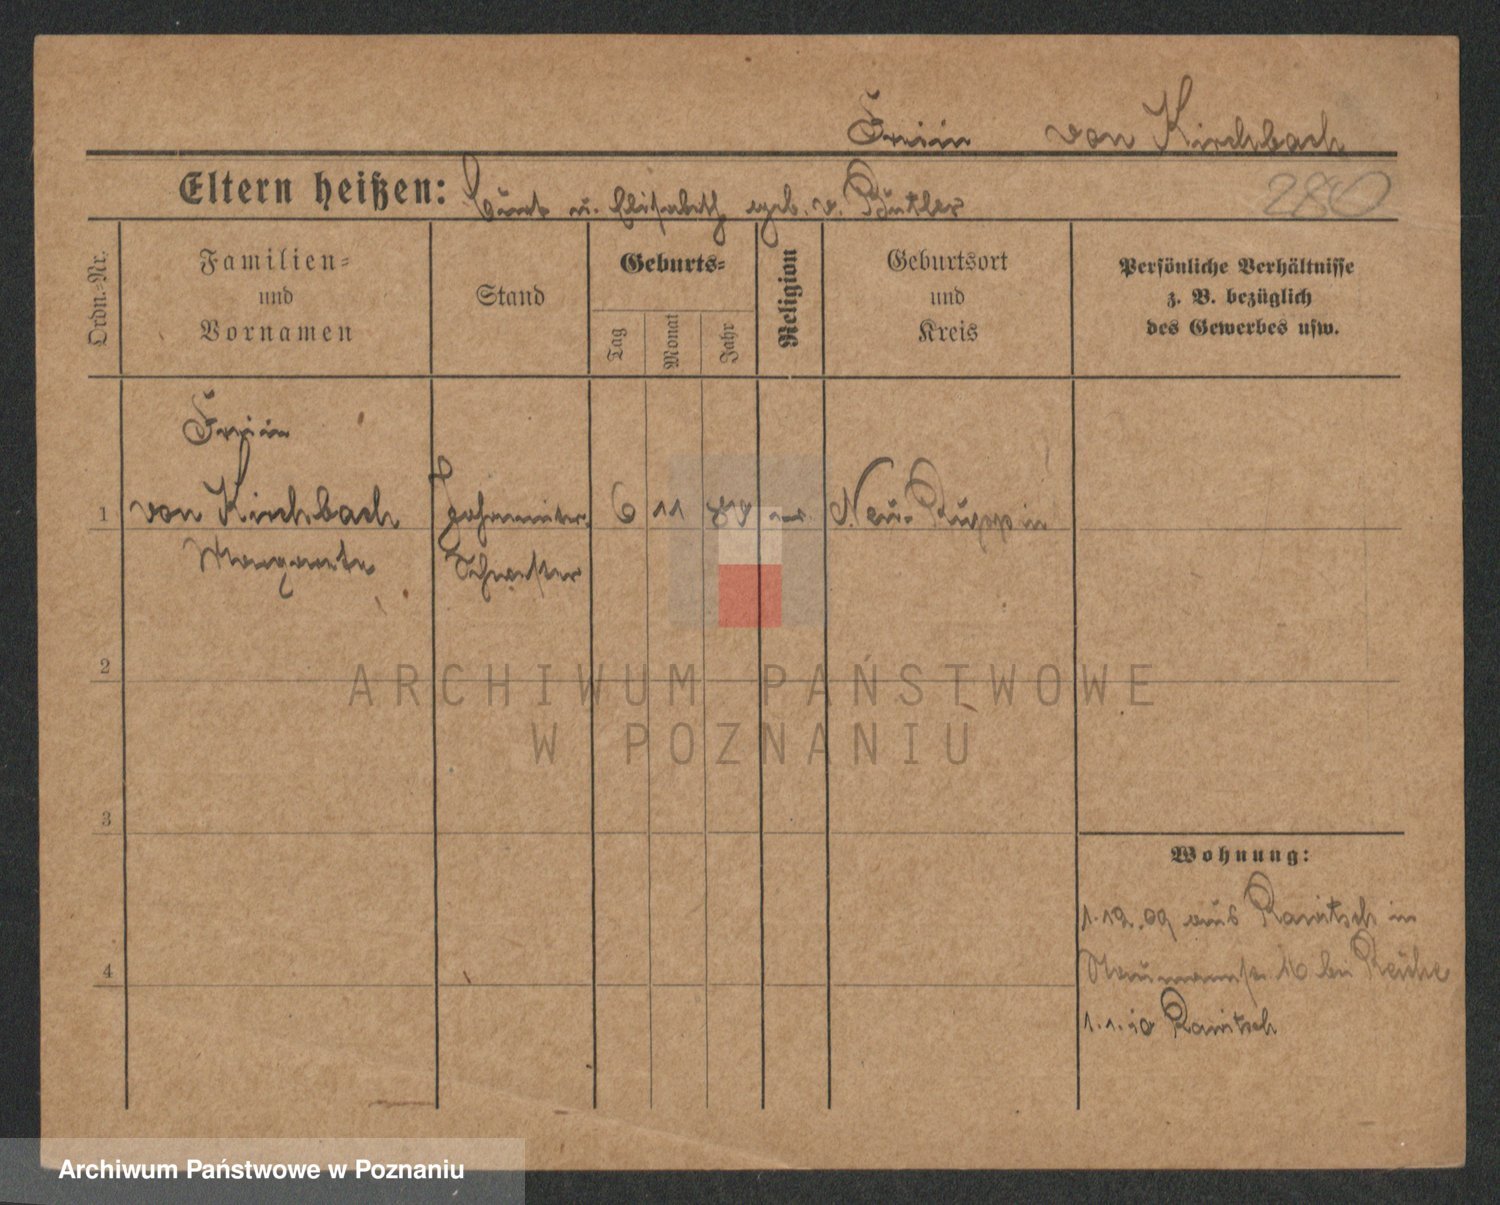 Freiin von Kirchbach
Eltern heißen: Curt u. Elisabeth geb. v. Büttler
280
Ordn.-Nr.
Familien-
und
Vornamen
Stand
Geburts-
Tag
Monat
Jahr
Religion
Geburtsort
und
Kreis
Persönliche Verhältnisse
z. B. bezüglich
des Gewerbes usw.
Freiin
1 von Kirchbach Johanniter- 6 11 88 Neu-Ruppin
Margarete Schwester
2
ARCHIWUM PAŃSTWOWE
W POZNANIU
3
Wohnung:
1.12.09 aus Rawitsch in
Naumannstr. 16 bei Reiche
4
1.1.10 Rawitsch
Archiwum Państwowe w Poznaniu